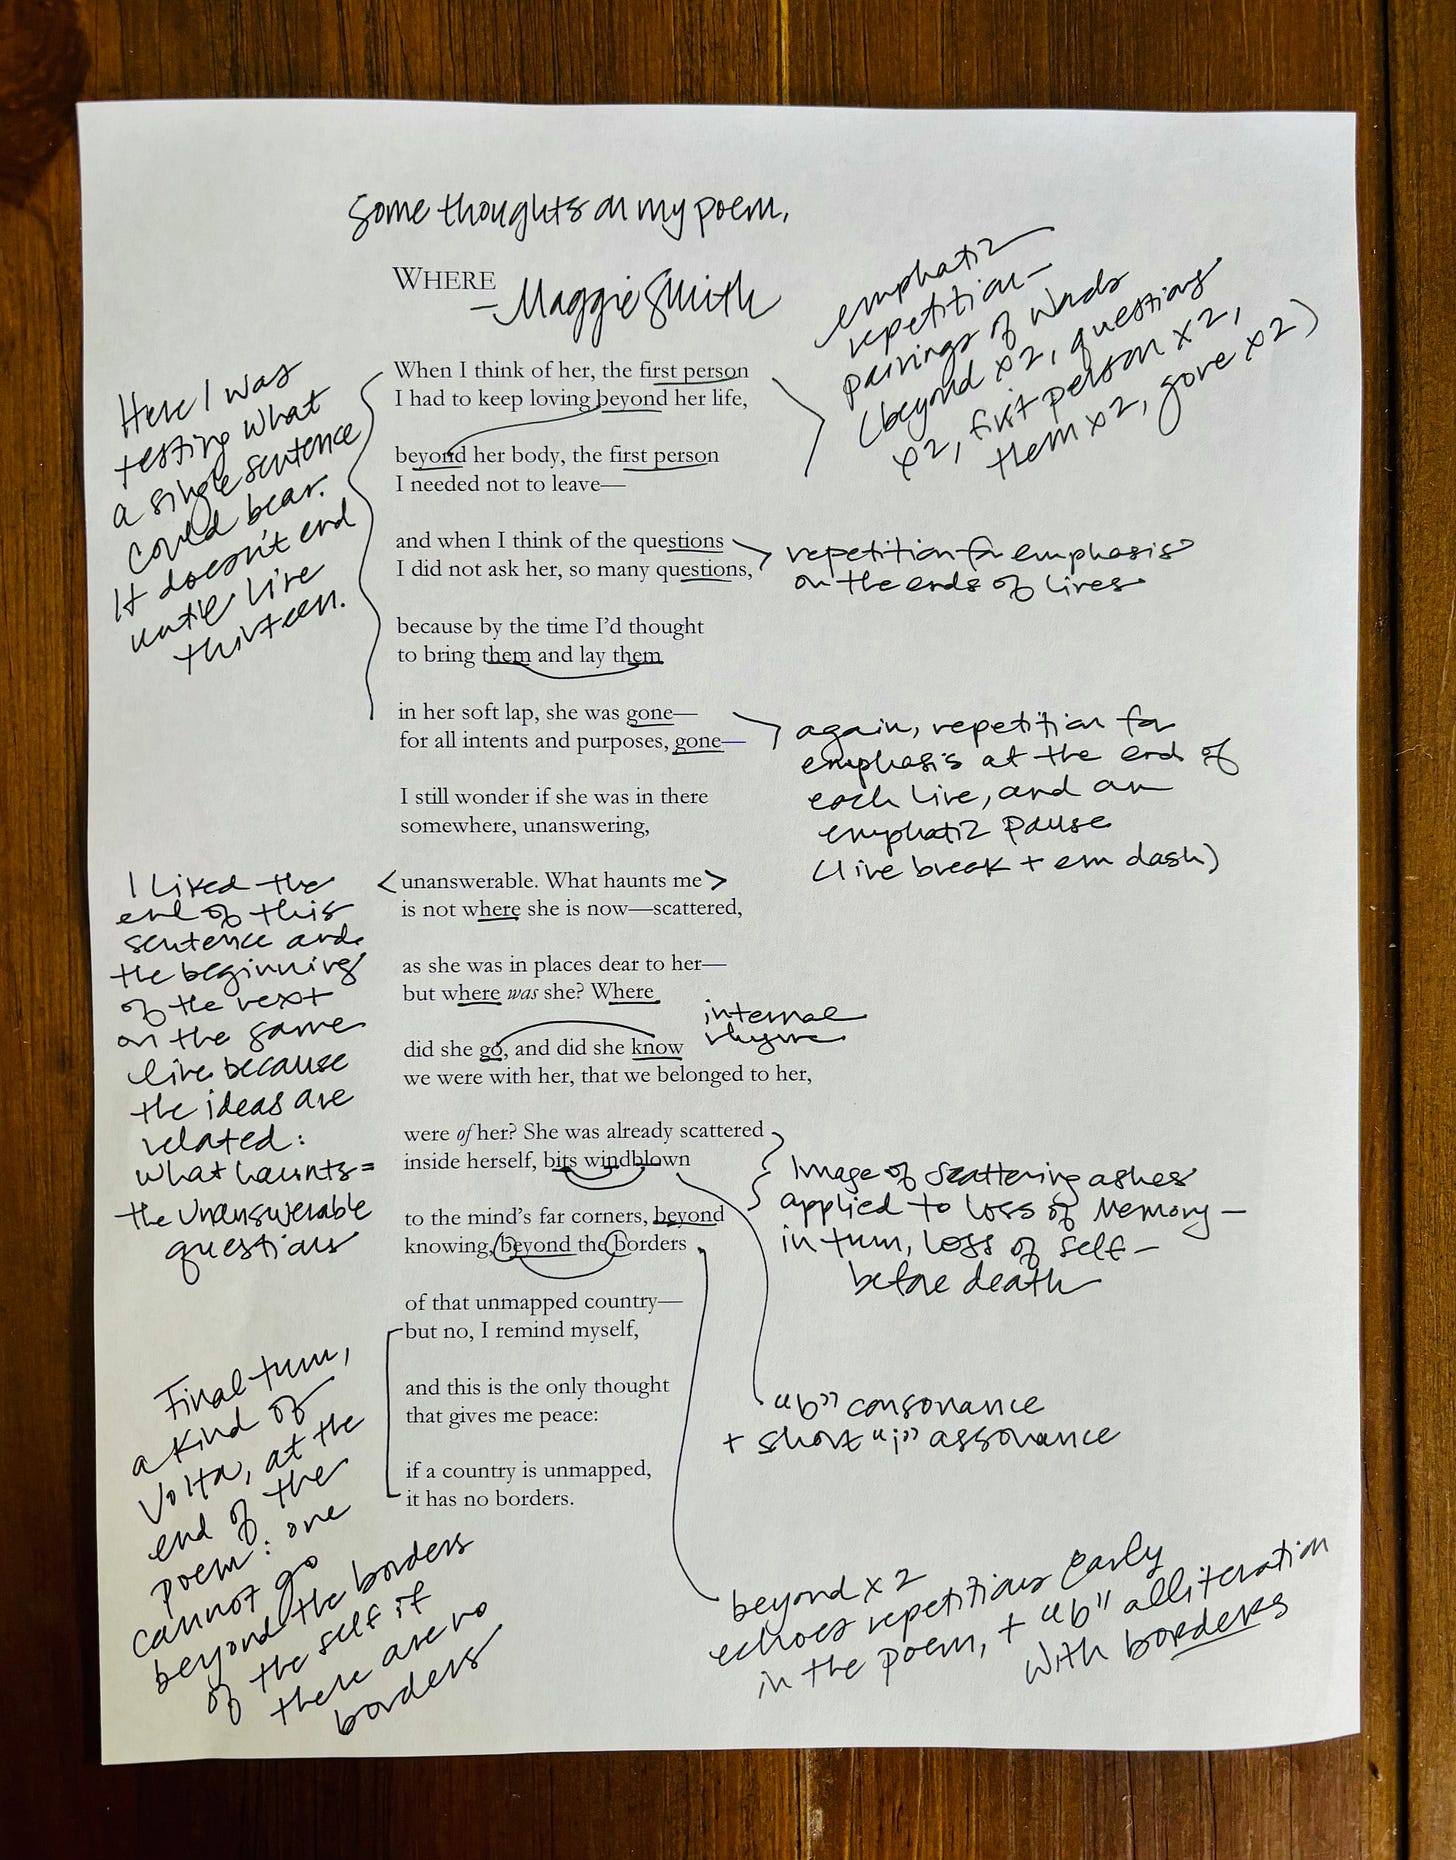 some thoughts on my poem,
WHERE
-Maggie Smith
emphatic
repetition—
pairings of words
(beyond x2, questions
x2, first person x2,
them x2, gone x2)
Here I was
testing what
a single sentence
could bear.
It doesn't end
until line
thirteen.
When I think of her, the first person
I had to keep loving beyond her life,
beyond her body, the first person
I needed not to leave—
and when I think of the questions
I did not ask her, so many questions,
repetition for emphasis
on the ends of lines
because by the time I'd thought
to bring them and lay them
in her soft lap, she was gone—
for all intents and purposes, gone—
again, repetition for
emphasis at the end of
each line, and an
emphatic pause
(line break + em dash)
I still wonder if she was in there
somewhere, unanswering,
<unanswerable. What haunts me>
is not where she is now—scattered,
I liked the
end of this
sentence and
the beginning
of the next
on the same
line because
the ideas are
related:
what haunts =
the unanswerable
questions
as she was in places dear to her—
but where was she? Where
did she go, and did she know
internal
rhyme
we were with her, that we belonged to her,
were of her? She was already scattered
inside herself, bits windblown
Image of scattering ashes
applied to loss of memory—
in turn, loss of self—
before death
to the mind's far corners, beyond
knowing, beyond the borders
of that unmapped country—
but no, I remind myself,
and this is the only thought
that gives me peace:
"b" consonance
+ short "i" assonance
if a country is unmapped,
it has no borders.
Final turn,
a kind of
volta, at the
end of the
poem: one
cannot go
beyond the borders
of the self if
there are no
borders
beyond x2
echoes repetitions early
in the poem, + "b" alliteration
with borders